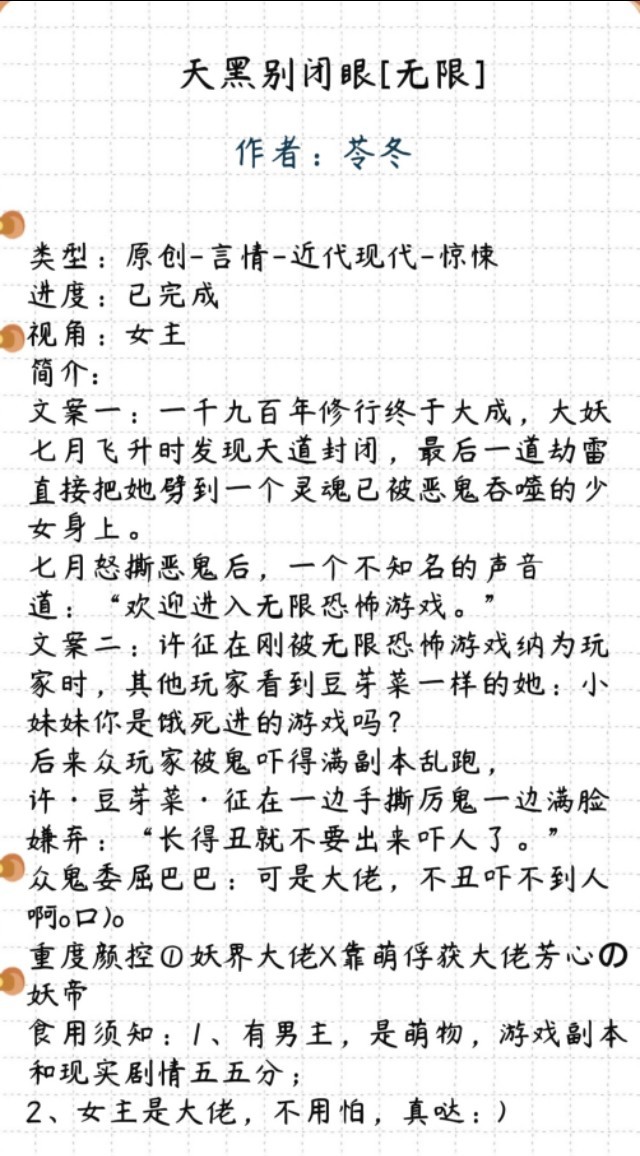 天黑别闭眼[无限]
作者：苓冬
类型：原创-言情-近代现代-惊悚
进度：已完成
视角：女主
简介：
文案一：一千九百年修行终于大成，大妖
七月飞升时发现天道封闭，最后一道劫雷
直接把她劈到一个灵魂已被恶鬼吞噬的少
女身上。
七月怒撕恶鬼后，一个不知名的声音
道：“欢迎进入无限恐怖游戏。”
文案二：许征在刚被无限恐怖游戏纳为玩
家时，其他玩家看到豆芽菜一样的她：小
妹妹你是饿死进的游戏吗？
后来众玩家被鬼吓得满副本乱跑，
许·豆芽菜·征在一边手撕厉鬼一边满脸
嫌弃：“长得丑就不要出来吓人了。”
众鬼委屈巴巴：可是大佬，不丑吓不到人
啊o口)o
重度颜控①妖界大佬X靠萌俘获大佬芳心の
妖帝
食用须知：1、有男主，是萌物，游戏副本
和现实剧情五五分；
2、女主是大佬，不用怕，真哒：)